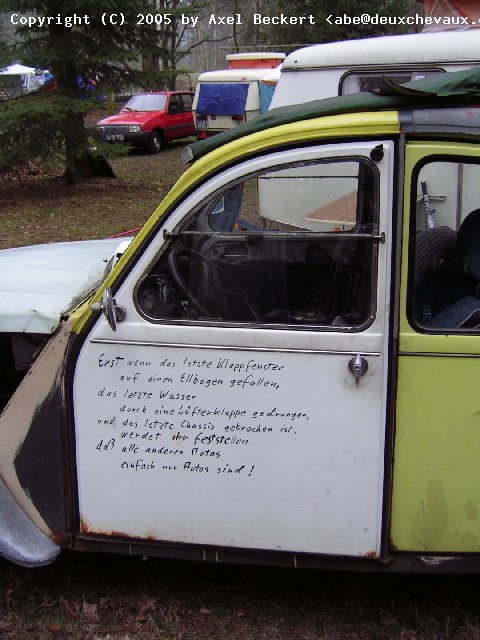 Copyright (C) 2005 by Axel Beckert <abe@deuxchevaux.
Erst wenn das letzte Klappfenster
auf einen Ellbogen gefallen,
das letzte Wasser
durch eine Lüfterklappe gedrungen,
und das letzte Chassis gebrochen ist,
werdet ihr feststellen
daß alle anderen Autos
einfach nur Autos sind!